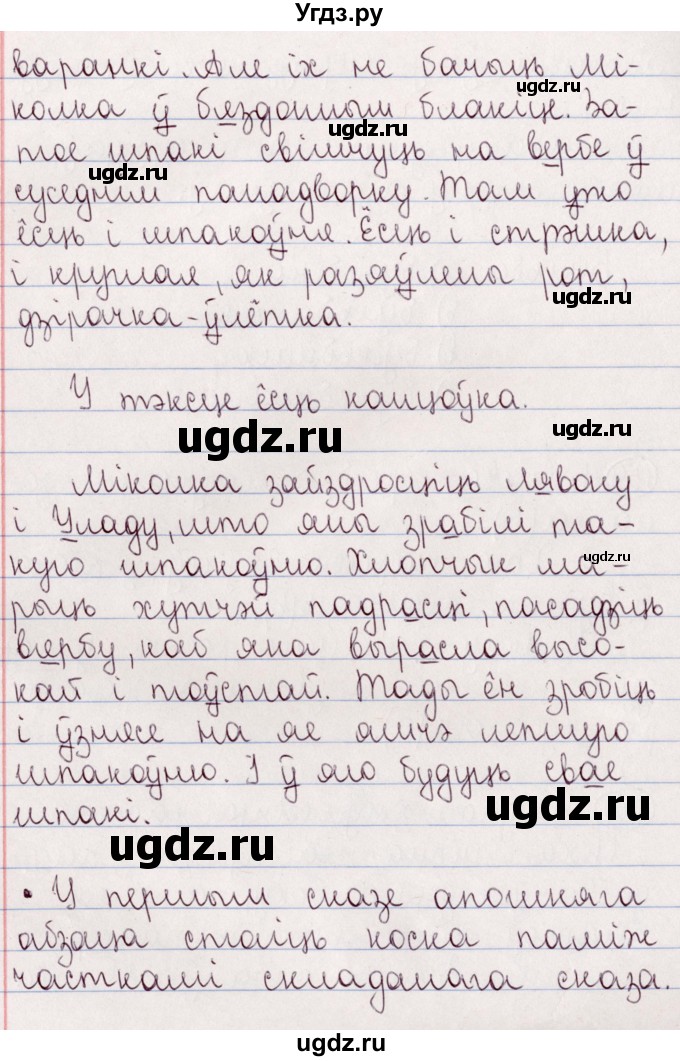 Угдз.ру
варанкі. Але іх не бачыць Мі-
колка ў бяздонным блакіце. За-
ugdz.ru
тое шпакі свішчуць на вербе ў
ugdz.ru
суседнім панадворку. Там ужо
ёсць і шпакоўня. Ёсць і стрэшка,
і круглая, як разяўлены рот,
ugdz.ru
дзірачка-ўлётка.
У тэксце ёсць канцоўка.
ugdz.ru
ugdz.ru
Міколка зайздросціць Лявону
і Уладу, што яны зрабілі та-
кую шпакоўню. Хлопчык ма-
ugdz.ru
рыць хутчэй падрасці, пасадзіць
вербу, каб яна вырасла высо-
кай і тоўстай. Тады ён зробіць
і ўзнясе на яе яшчэ лепшую
шпакоўню. І ў яго будуць свае
шпакі.
ugdz.ru
ugdz.ru
• У першым сказе апошняга
абзаца стаіць коска паміж
часткамі складанага сказа.
ugdz.ru